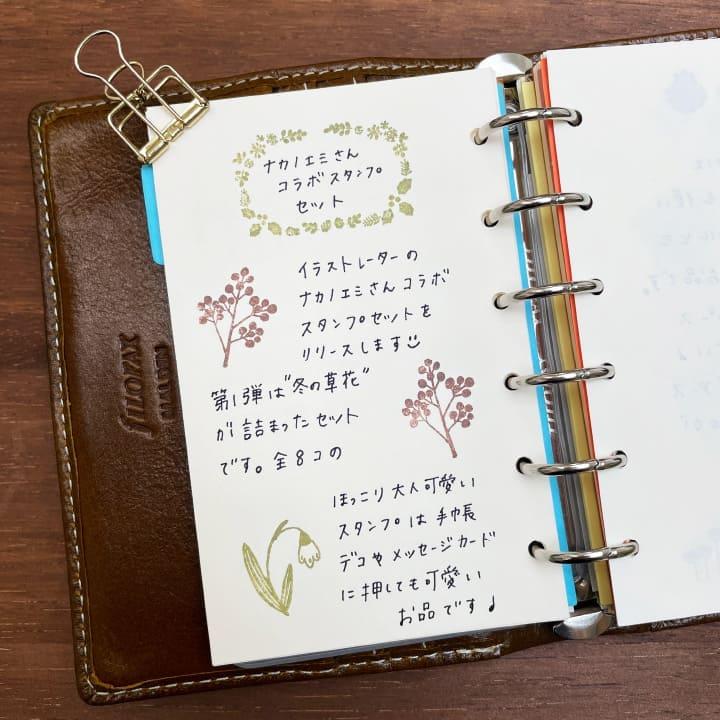 ナカノエミさん
コラボスタンプ
セット
イラストレーターの
ナカノエミさんコラボ
スタンプセットを
リリースします
第1弾は"冬の草花"
が詰まったセット
です。全8コの
ほっこり大人可愛い
スタンプは手帳
デコやメッセージカード
に押しても可愛い
お品です♪
filofax